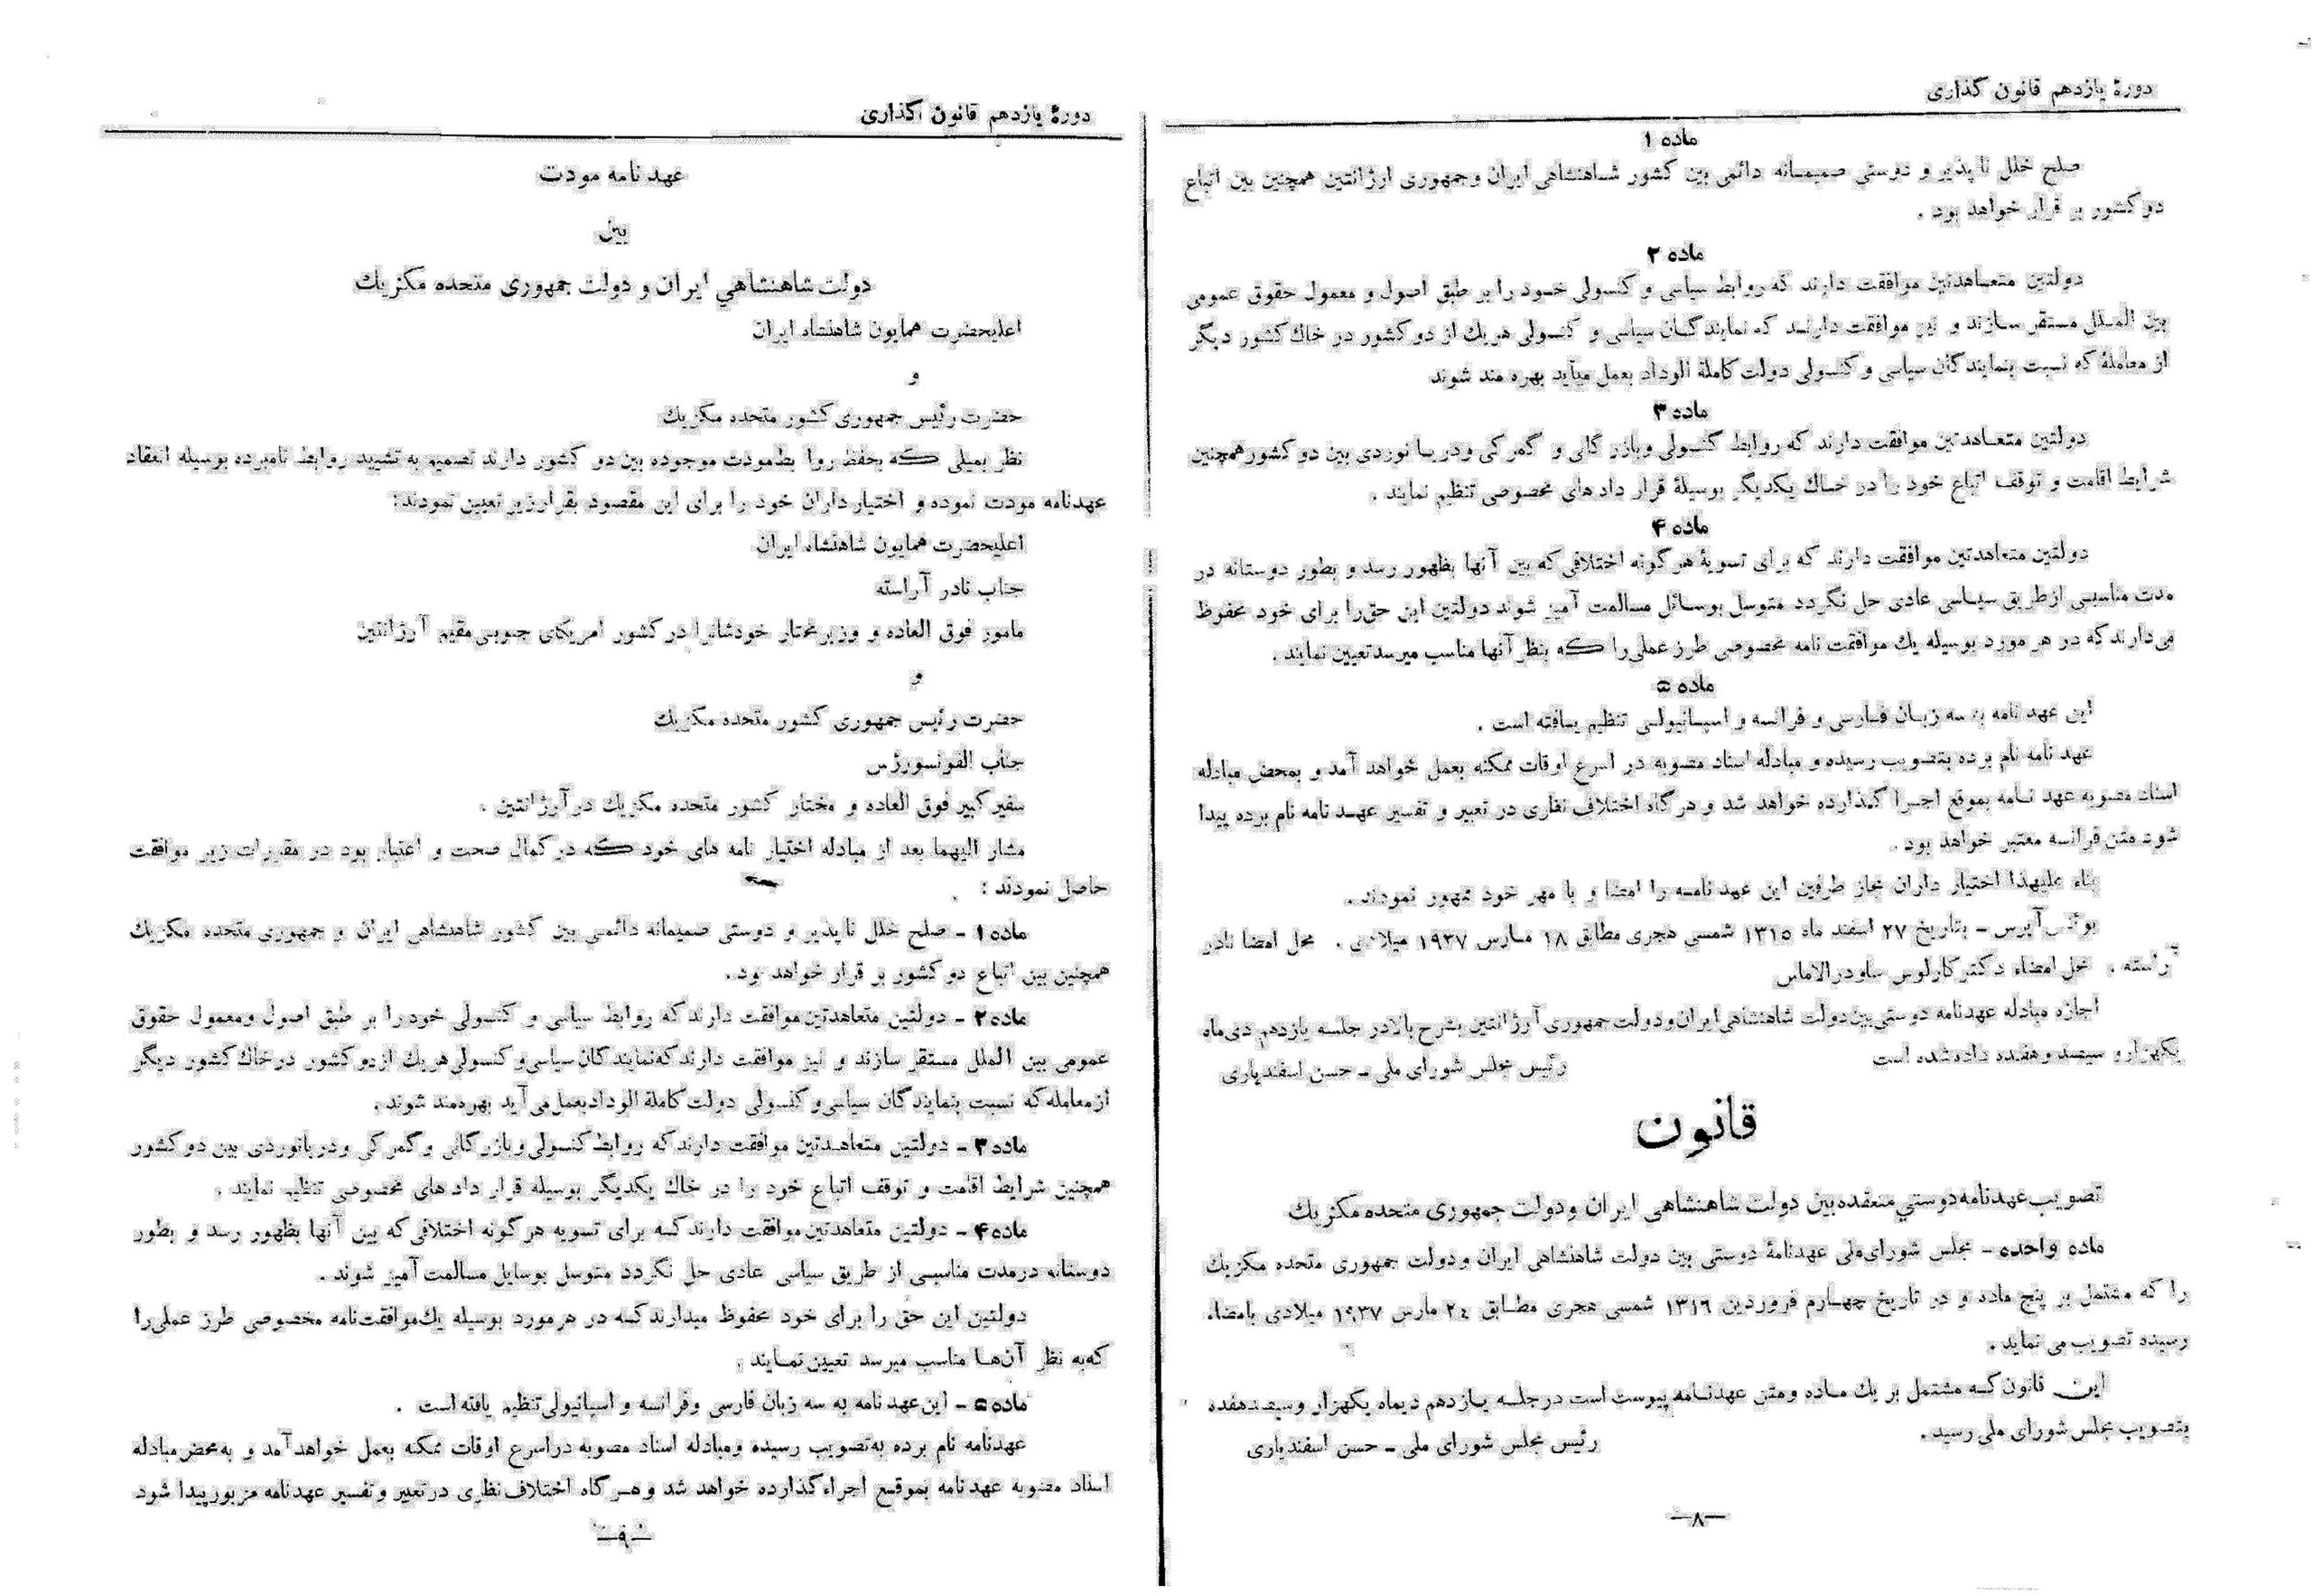 دورۀ یازدهم قانون گذاری
ماده ۱
صلح خلل ناپذیر و دوستی صمیمانه دائمی بین کشور شاهنشاهی ایران و جمهوری ارژانتین همچنین بین اتباع
دو کشور بر قرار خواهد بود .
ماده ۲
دولتین متعاهدتین موافقت دارند که روابط سیاسی و کنسولی خود را بر طبق اصول و معمول حقوق عمومی
بین الملل مستقر سازند و نیز موافقت دارند که نمایندگان سیاسی و کنسولی هریك از دو کشور در خاك کشور دیگر
از معاملۀ که نسبت بنمایندگان سیاسی و کنسولی دولت کاملة الوداد بعمل میآید بهره مند شوند
ماده ۳
دولتین متعاهدتین موافقت دارند که روابط کنسولی و بازرگانی و گمرکی و دریا نوردی بین دو کشور همچنین
شرایط اقامت و توقف اتباع خود را در خاك یکدیگر بوسیلۀ قرار داد های مخصوصی تنظیم نمایند .
ماده ۴
دولتین متعاهدتین موافقت دارند که برای تسویۀ هر گونه اختلافی که بین آنها بظهور رسد و بطور دوستانه در
مدت مناسبی از طریق سیاسی عادی حل نگردد متوسل بوسائل مسالمت آمیز شوند دولتین این حق را برای خود محفوظ
می‌دارند که در هر مورد بوسیله یك موافقت نامه مخصوصی طرز عملی را که بنظر آنها مناسب میرسد تعیین نمایند .
ماده ۵
این عهد نامه به سه زبان فارسی و فرانسه و اسپانیولی تنظیم یافته است .
عهد نامه نام برده بتصویب رسیده و مبادله اسناد مصوبه در اسرع اوقات ممکنه بعمل خواهد آمد و بمحض مبادله
اسناد مصوبه عهد نامه بموقع اجرا گذارده خواهد شد و هر گاه اختلاف نظری در تعبیر و تفسیر عهد نامه نام برده پیدا
شود متن فرانسه معتبر خواهد بود .
بناء علیهذا اختیار داران مجاز طرفین این عهد نامه را امضا و با مهر خود ممهور نمودند .
بوئنس آیرس - بتاریخ ۲۷ اسفند ماه ۱۳۱۵ شمسی هجری مطابق ۱۸ مارس ۱۹۳۷ میلادی . محل امضا نادر
آراسته . محل امضاء دکتر کارلوس ساودرالاماس
اجازه مبادله عهدنامه دوستی بین دولت شاهنشاهی ایران و دولت جمهوری آرژانتین بشرح بالا در جلسه یازدهم دی ماه
یکهزار و سیصد و هفده داده شده است
رئیس مجلس شورای ملی - حسن اسفندیاری
قانون
تصویب عهدنامه دوستي منعقده بین دولت شاهنشاهی ایران و دولت جمهوری متحده مکزیك
ماده واحده - مجلس شورای ملی عهدنامۀ دوستی بین دولت شاهنشاهی ایران و دولت جمهوری متحده مکزیك
را که مشتمل بر پنج ماده و در تاریخ چهارم فروردین ۱۳۱۶ شمسی هجری مطابق ۲۴ مارس ۱۹۳۷ میلادی بامضاء
رسیده تصویب می نماید .
این قانون که مشتمل بر یك ماده و متن عهدنامه پیوست است در جلسه یازدهم دیماه یکهزار و سیصد هفده
بتصویب مجلس شورای ملی رسید .
رئیس مجلس شورای ملی - حسن اسفندیاری
—۸—
دورۀ یازدهم قانون گذاری
عهد نامه مودت
بین
دولت شاهنشاهي ایران و دولت جمهوری متحده مکزیك
اعلیحضرت همایون شاهنشاه ایران
و
حضرت رئیس جمهوری کشور متحده مکزیك
نظر بمیلی که بحفظ روا بط مودت موجوده بین دو کشور دارند تصمیم به تشیید روابط نامبرده بوسیله انعقاد
عهدنامه مودت نموده و اختیار داران خود را برای این مقصود بقرار زیر تعیین نمودند :
اعلیحضرت همایون شاهنشاه ایران
جناب نادر آراسته
مامور فوق العاده و وزیر مختار خودشانرا در کشور امریکای جنوبی مقیم آرژانتین
و
حضرت رئیس جمهوری کشور متحده مکزیك
جناب الفونسورژس
سفیر کبیر فوق العاده و مختار کشور متحده مکزیك در آرژانتین .
مشار الیهما بعد از مبادله اختیار نامه های خود که در کمال صحت و اعتبار بود در مقررات زیر موافقت
حاصل نمودند :
ماده۱ - صلح خلل ناپذیر و دوستی صمیمانه دائمی بین کشور شاهنشاهی ایران و جمهوری متحده مکزیك
همچنین بین اتباع دو کشور بر قرار خواهد بود .
ماده۲ - دولتین متعاهدتین موافقت دارند که روابط سیاسی و کنسولی خود را بر طبق اصول و معمول حقوق
عمومی بین الملل مستقر سازند و نیز موافقت دارند که نمایندگان سیاسی و کنسولی هریك از دو کشور در خاك کشور دیگر
از معامله که نسبت بنمایندگان سیاسی و کنسولی دولت کاملة الوداد بعمل می آید بهره‌مند شوند .
ماده۳ - دولتین متعاهدتین موافقت دارند که روابط کنسولی و بازرگانی و گمرکی و دریانوردی بین دو کشور
همچنین شرایط اقامت و توقف اتباع خود را در خاك یکدیگر بوسیله قرار داد های مخصوصی تنظیم نمایند .
ماده۴ - دولتین متعاهدتین موافقت دارند که برای تسویه هر گونه اختلافی که بین آنها بظهور رسد و بطور
دوستانه در مدت مناسبی از طریق سیاسی عادی حل نگردد متوسل بوسایل مسالمت آمیز شوند .
دولتین این حق را برای خود محفوظ میدارند که در هر مورد بوسیله یك موافقت نامه مخصوصی طرز عملی را
که به نظر آن‌ها مناسب میرسد تعیین نمایند .
ماده۵ - این عهد نامه به سه زبان فارسی و فرانسه و اسپانیولی تنظیم یافته است .
عهدنامه نام برده به تصویب رسیده و مبادله اسناد مصوبه در اسرع اوقات ممکنه بعمل خواهد آمد و به محض مبادله
اسناد مصوبه عهد نامه بموقع اجراء گذارده خواهد شد و هر گاه اختلاف نظری در تعبیر و تفسیر عهدنامه مزبور پیدا شود
—۹—